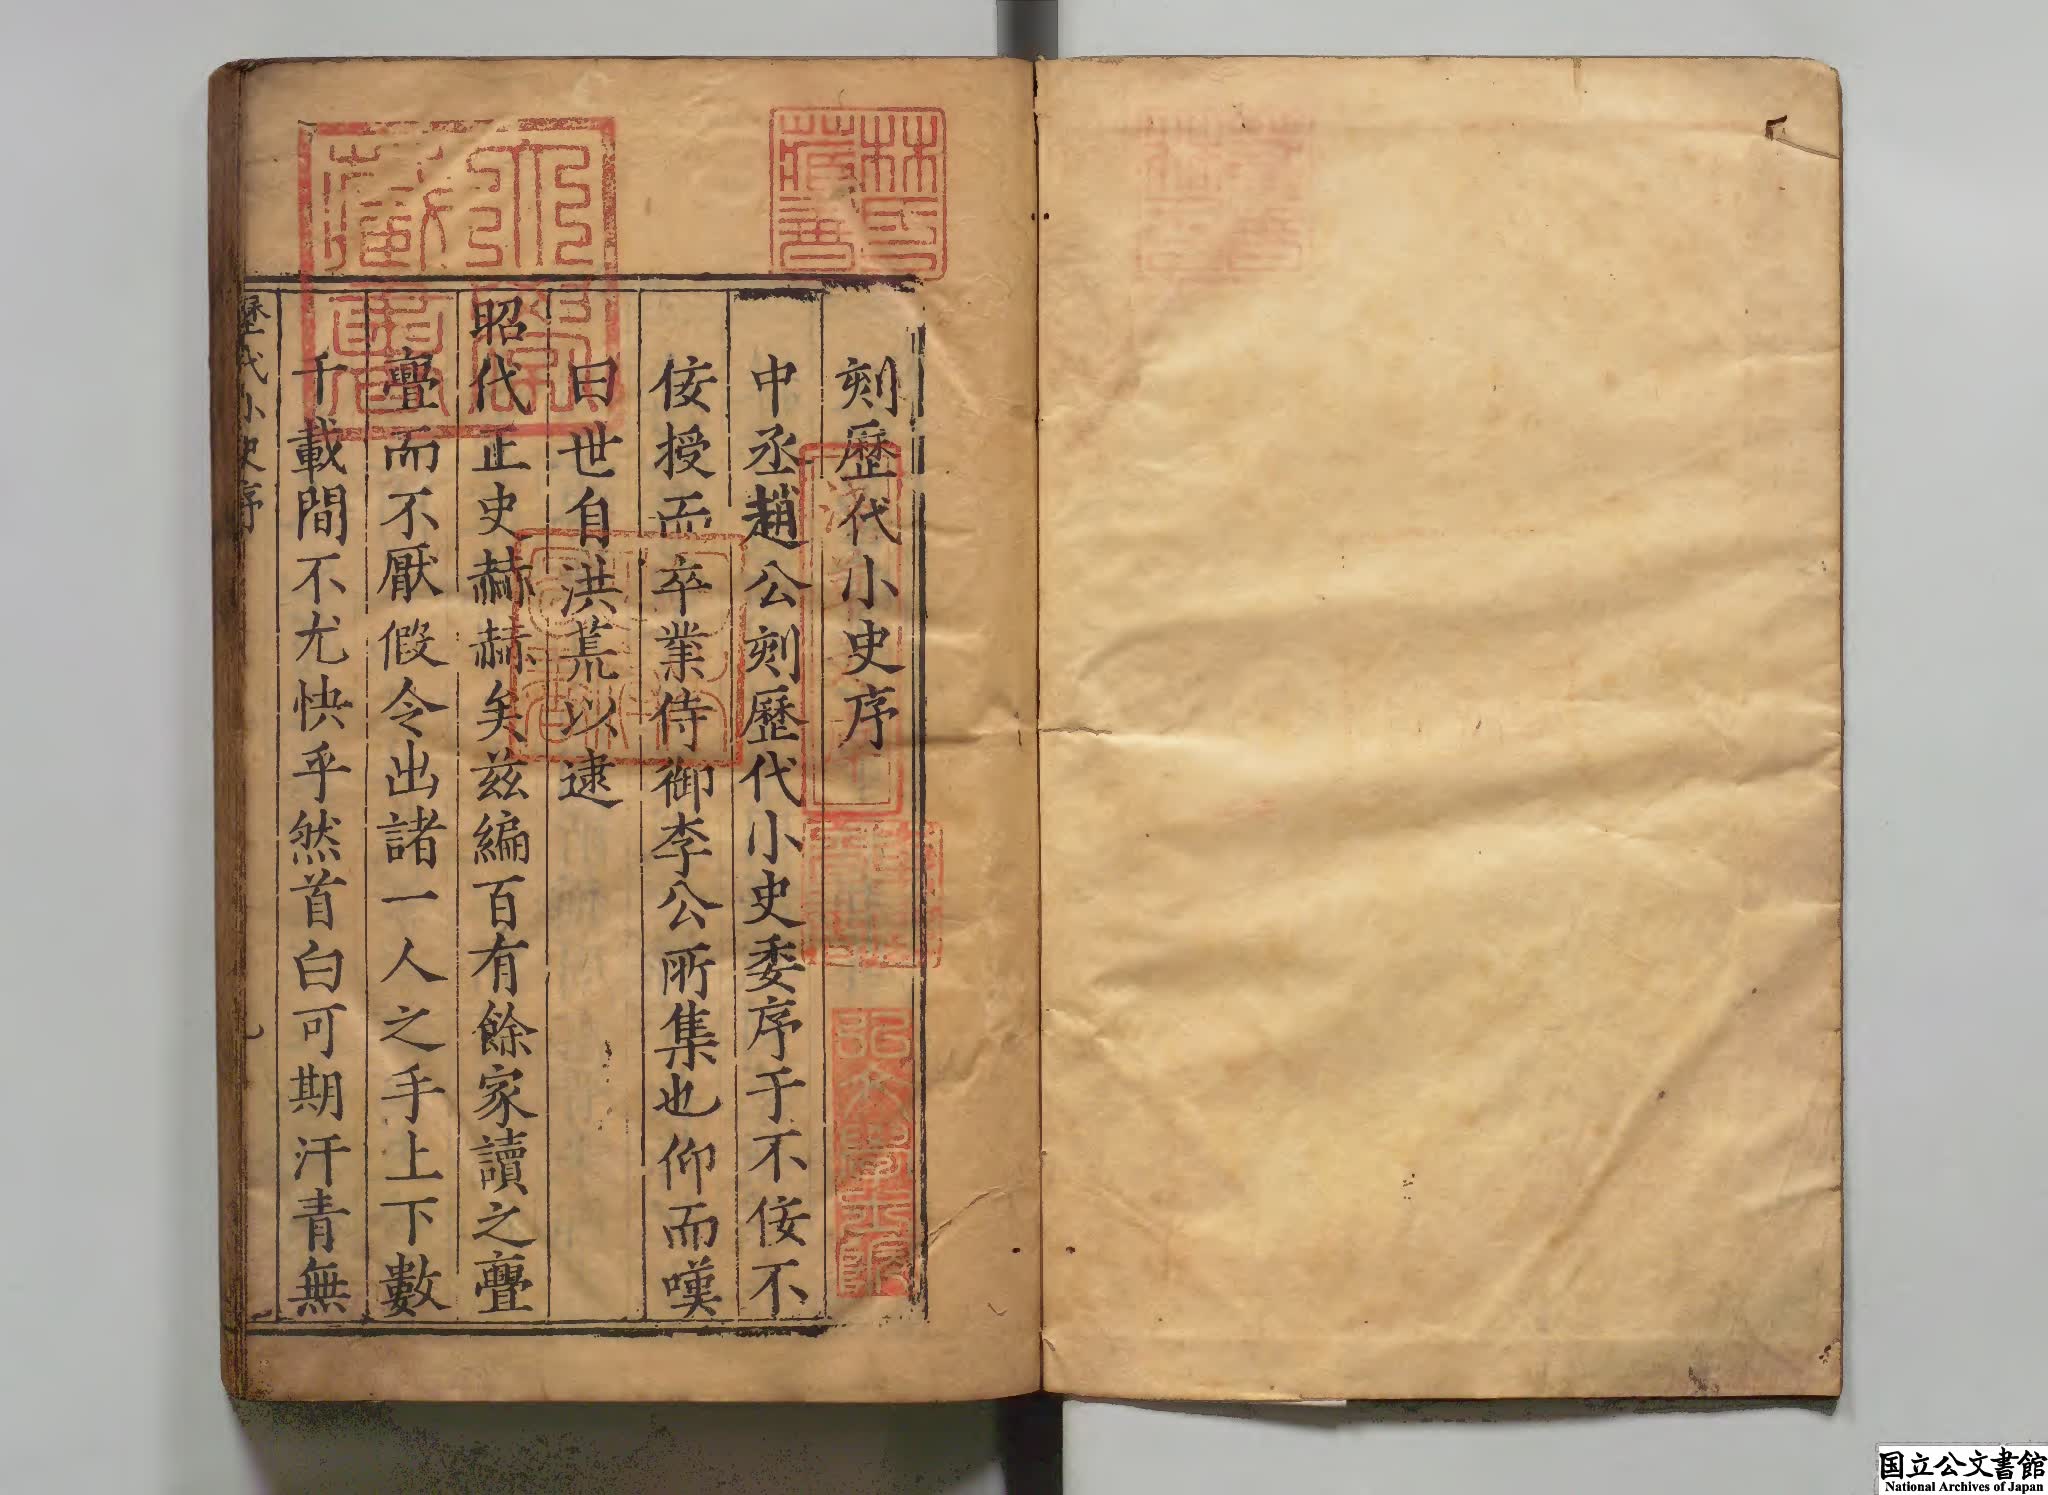 刻歷代小史序
中丞趙公刻歷代小史委序于不佞不
佞授而卒業侍御李公所集也仰而嘆
曰世自洪荒以逮
昭代正史赫赫矣兹編百有餘家讀之亹
亹而不厭假令出諸一人之手上下數
千載間不尤快乎然首白可期汗青無
歷代小史序
林氏藏書
國立公文書館
National Archives of Japan